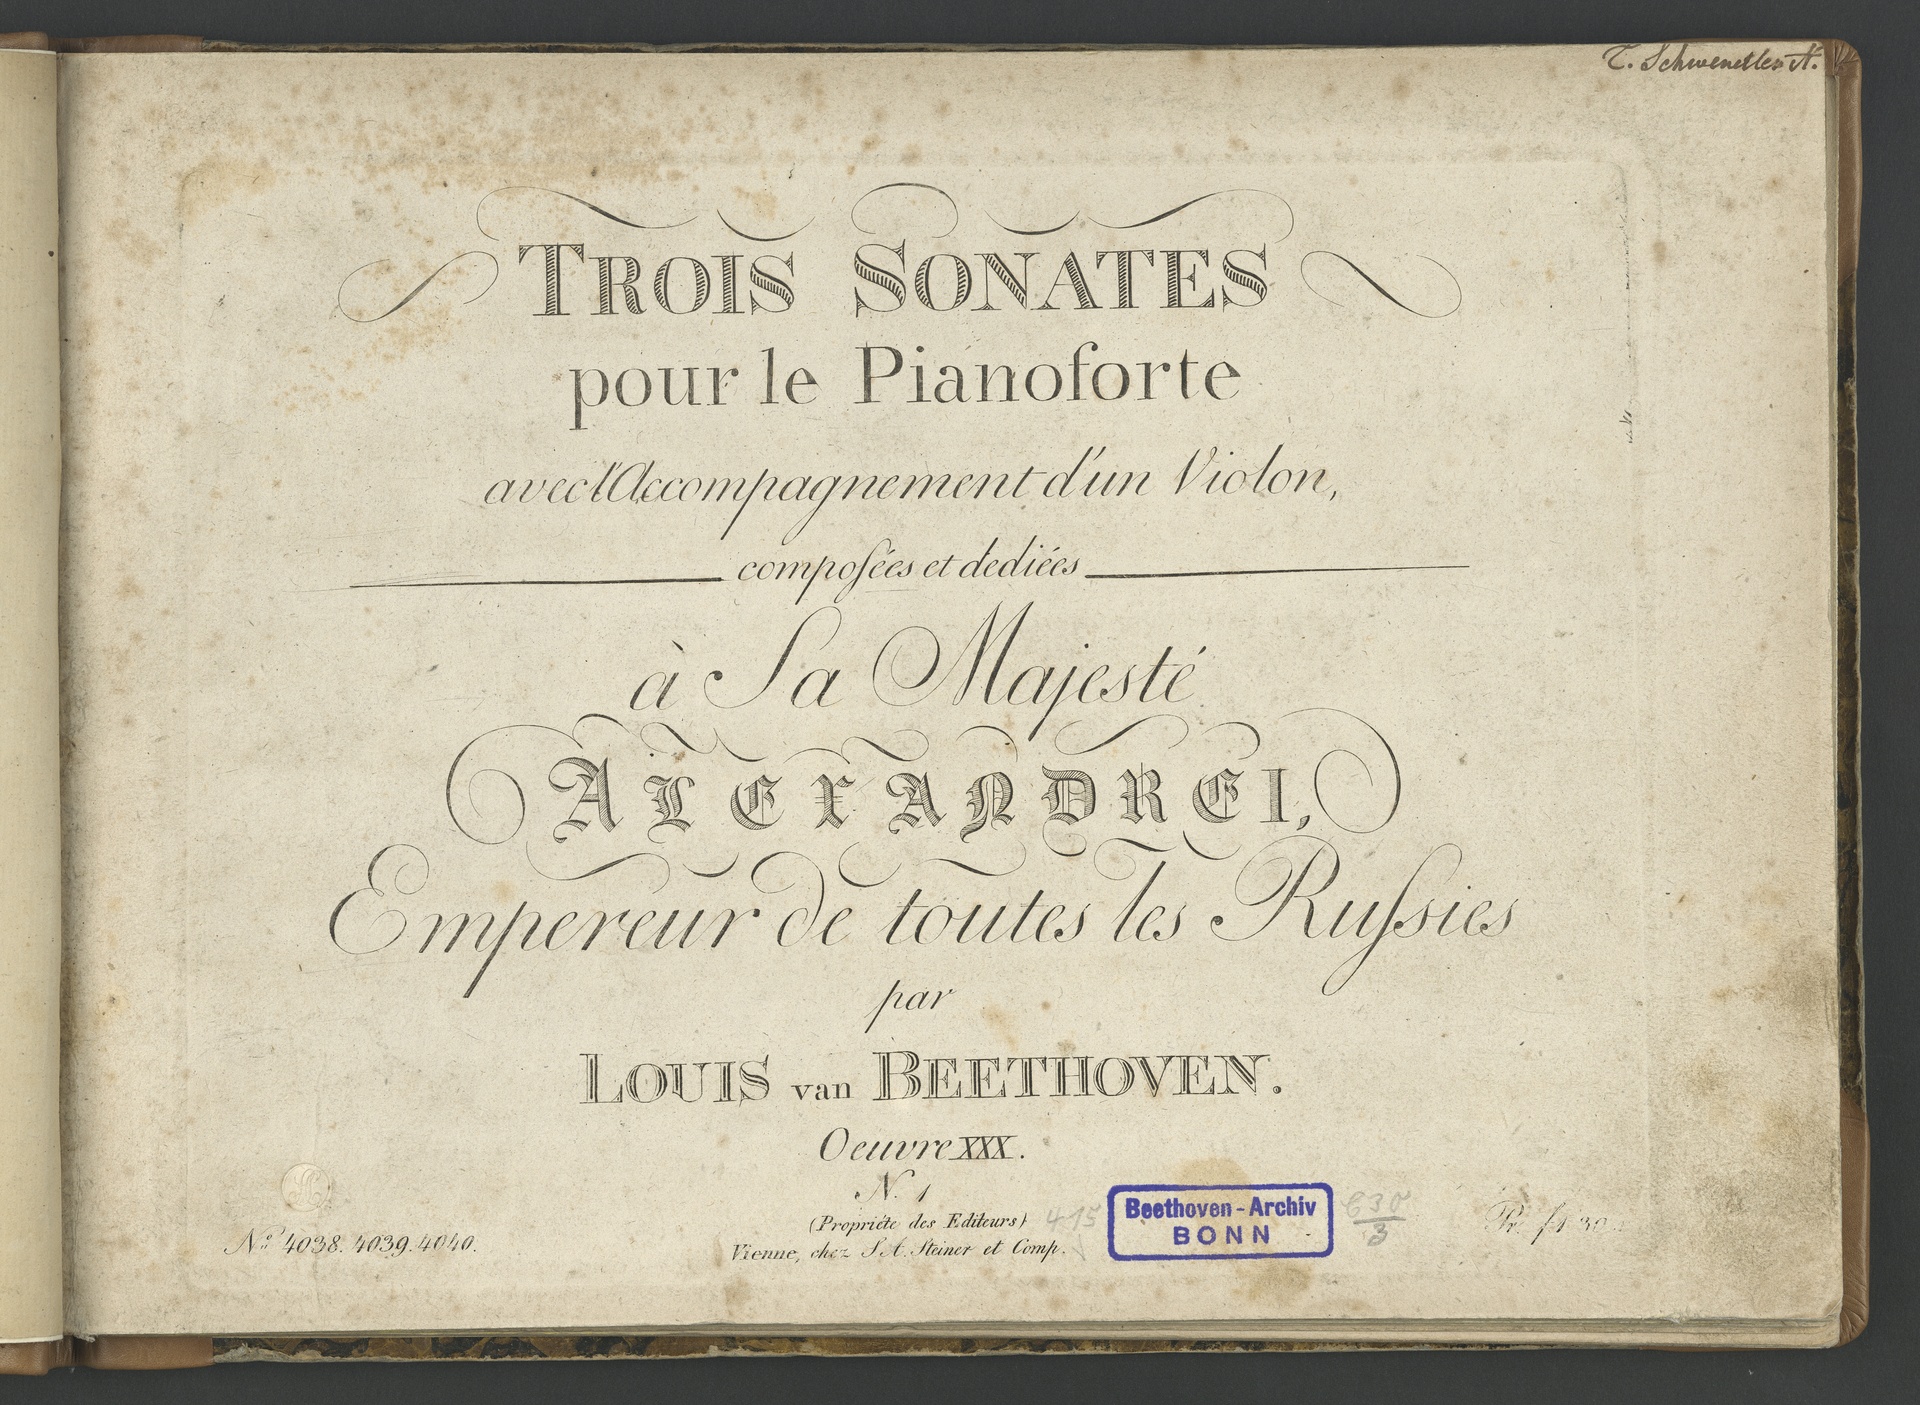 TROIS SONATES
pour le Pianoforte
avec l'Accompagnement d'un Violon,
compoſées et dediées
à Sa Majesté
ALEXANDRE I,
Empereur de toutes les Ruſsies
par
LOUIS van BEETHOVEN.
Oeuvre XXX.
N. 1
(Propriéte des Editeurs)
Vienne, chez S. A. Steiner et Comp.
No. 4038. 4039. 4040.
415
Beethoven-Archiv
BONN
3